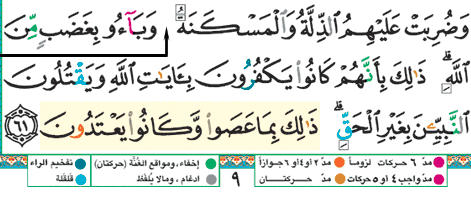 وَضُرِبَتْ عَلَيْهِمُ ٱلذِّلَّةُ وَٱلْمَسْكَنَةُ وَبَآءُو بِغَضَبٍ مِّنَ
ٱللَّهِ ۗ ذَٰلِكَ بِأَنَّهُمْ كَانُوا۟ يَكْفُرُونَ بِـَٔايَٰتِ ٱللَّهِ وَيَقْتُلُونَ
ٱلنَّبِيِّـۧنَ بِغَيْرِ ٱلْحَقِّ ۗ ذَٰلِكَ بِمَا عَصَوا۟ وَّكَانُوا۟ يَعْتَدُونَ ٦١
مدّ ٦ حركات لزوماً مدّ ٢ أو ٤ أو ٦ جوازاً إخفاء، ومواقع الغُنَّة (حركتان) تفخيم الراء
مدّ واجب ٤ أو ٥ حركات مدّ حركتان ٩ إدغام، وما لا يُلفَظ قلقلة